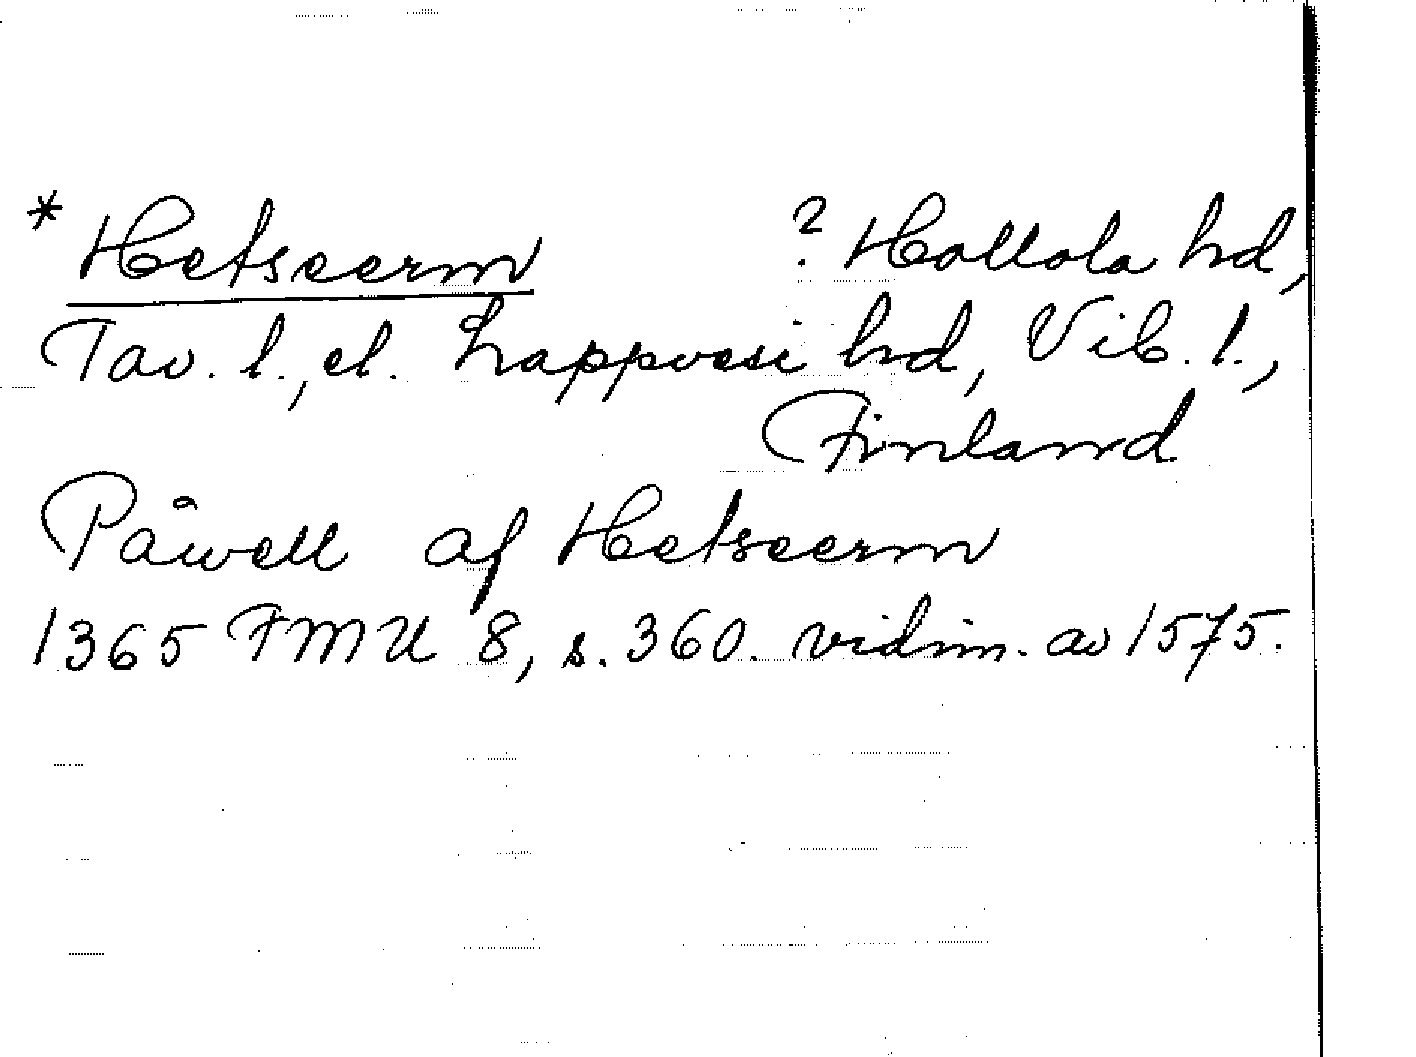 * Hetseerm ? Hollola hd,
Tav. l., el. Lappvesi hd, Vib. l.,
Finland
Påwell af Hetseerm
1365 FMU 8, s. 360. vidim. av 1575.